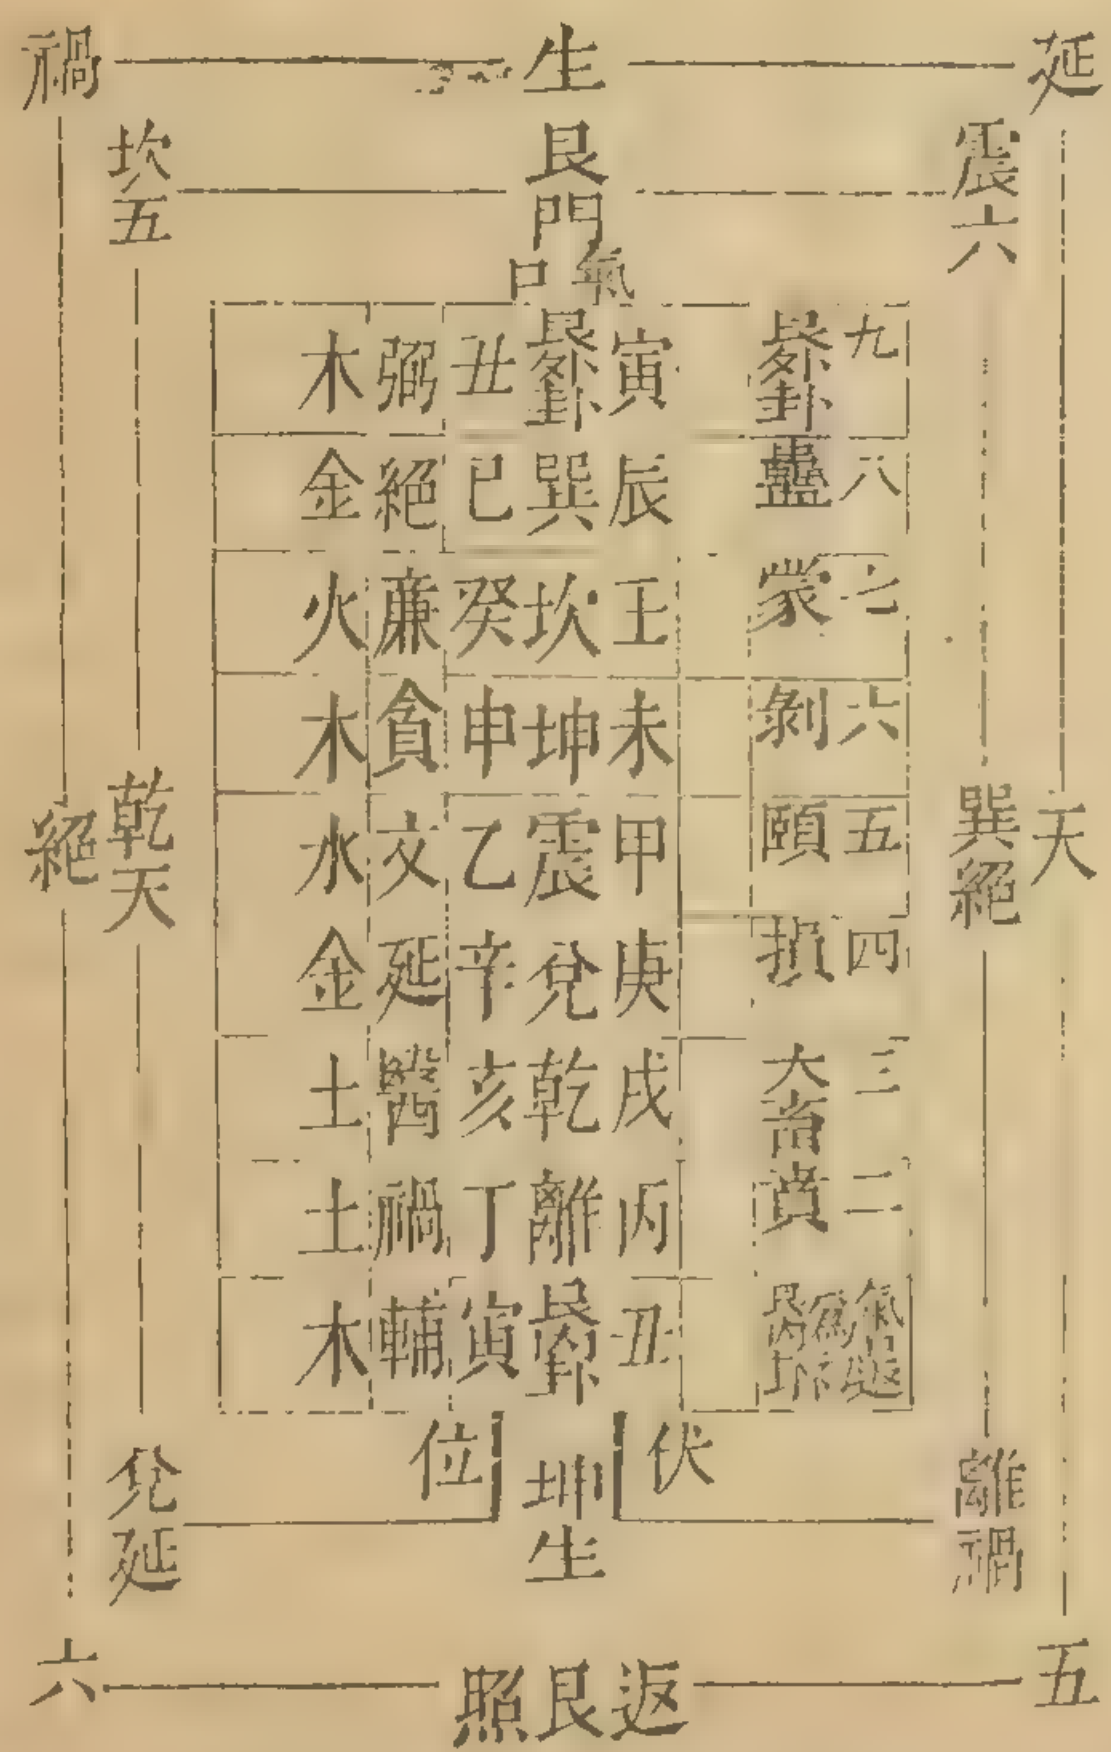 延 生 禍
震六 艮門 坎五
氣口
九 艮外卦 寅 艮外卦 丑 弼 木
八 蠱 辰 巽 巳 絕 金
七 蒙 壬 坎 癸 廉 火
六 剝 未 坤 申 貪 木
五 頤 甲 震 乙 文 水
四 損 庚 兌 辛 延 金
三 大畜 戌 乾 亥 醫 土
二 賁 丙 離 丁 禍 土
丑 艮內卦 寅 輔 木
天 巽絕 乾天 絕
伏 位
離禍 坤生 兌延
五 返艮照 六